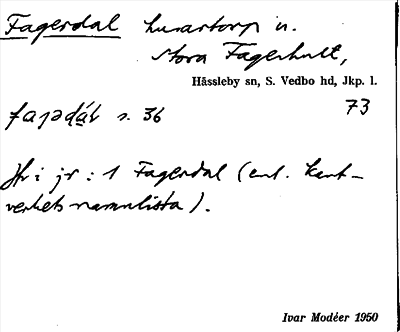 Fagerdal husartorp u.
Stora Fagerhult,
Hässleby sn, S. Vedbo hd, Jkp. l.
fajədạ́l s. 36 73
Hr i jr : 1 Fagerdal (enl. Kart-
verkets namnlista).
Ivar Modéer 1950